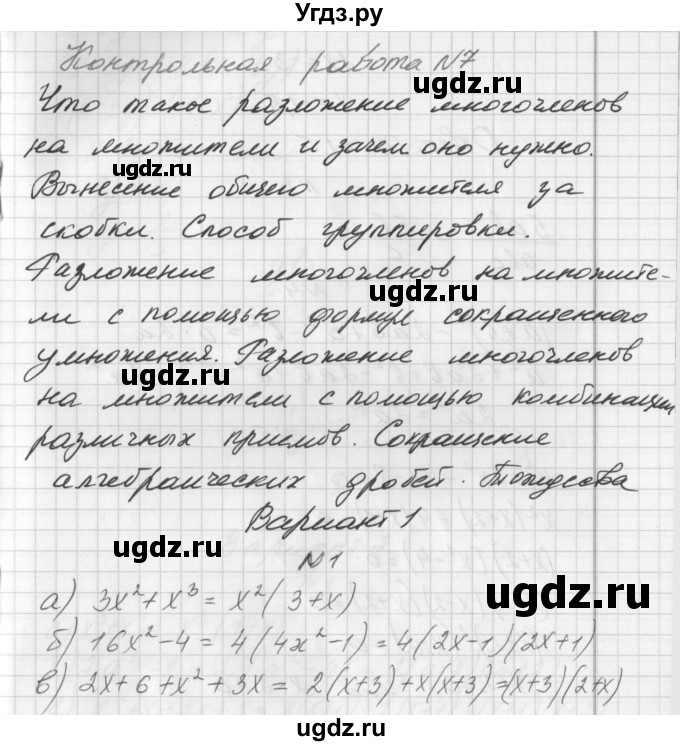 Угдз.ру
Контрольная работа N7
Что такое разложение многочленов
на множители и зачем оно нужно.
ugdz.ru
Вынесение общего множителя за
скобки. Способ группировки.
Разложение многочленов на множите-
ugdz.ru
ли с помощью формул сокращенного
умножения. Разложение многочленов
ugdz.ru
на множители с помощью комбинации
различных приемов. Сокращение
алгебраических дробей. Тождества
Вариант 1
ugdz.ru
N1
а) 3x² + x³ = x²(3+x)
ugdz.ru
б) 16x² - 4 = 4(4x² - 1) = 4(2x-1)(2x+1)
в) 2x + 6 + x² + 3x = 2(x+3) + x(x+3) = (x+3)(2+x)
ugdz.ru